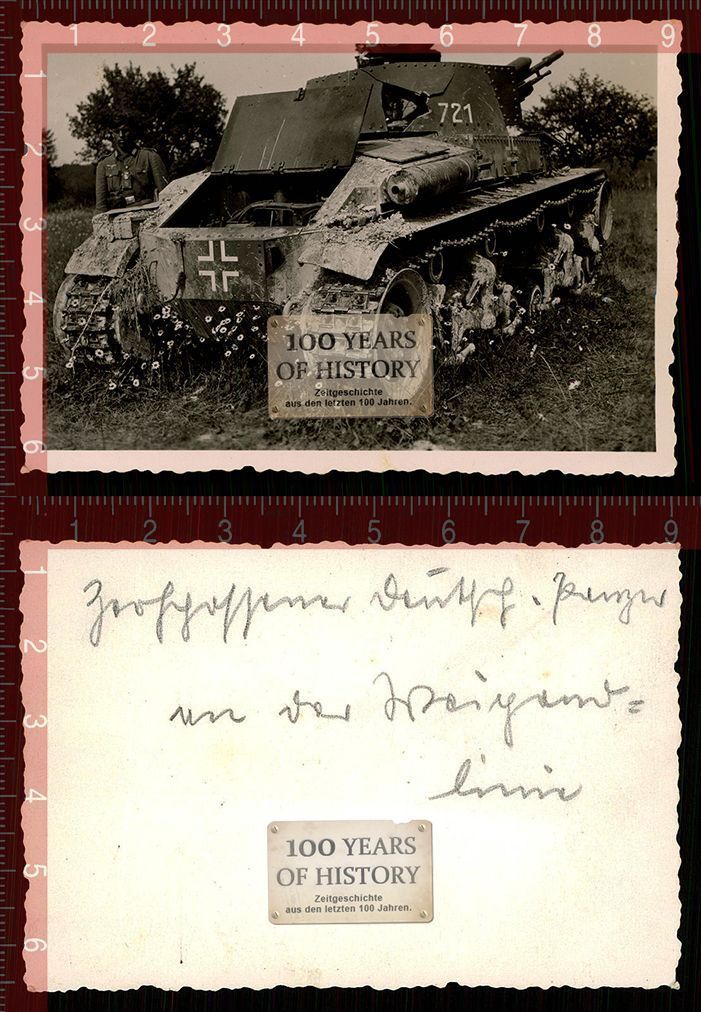 1 2 3 4 5 6 7 8 9
1
2
3
4
5
6
721
100 YEARS
OF HISTORY
Zeitgeschichte
aus den letzten 100 Jahren.
1 2 3 4 5 6 7 8 9
1
2
3
4
5
6
Zerschossener deutsch. Panzer
an der Weigand=
linie
100 YEARS
OF HISTORY
Zeitgeschichte
aus den letzten 100 Jahren.